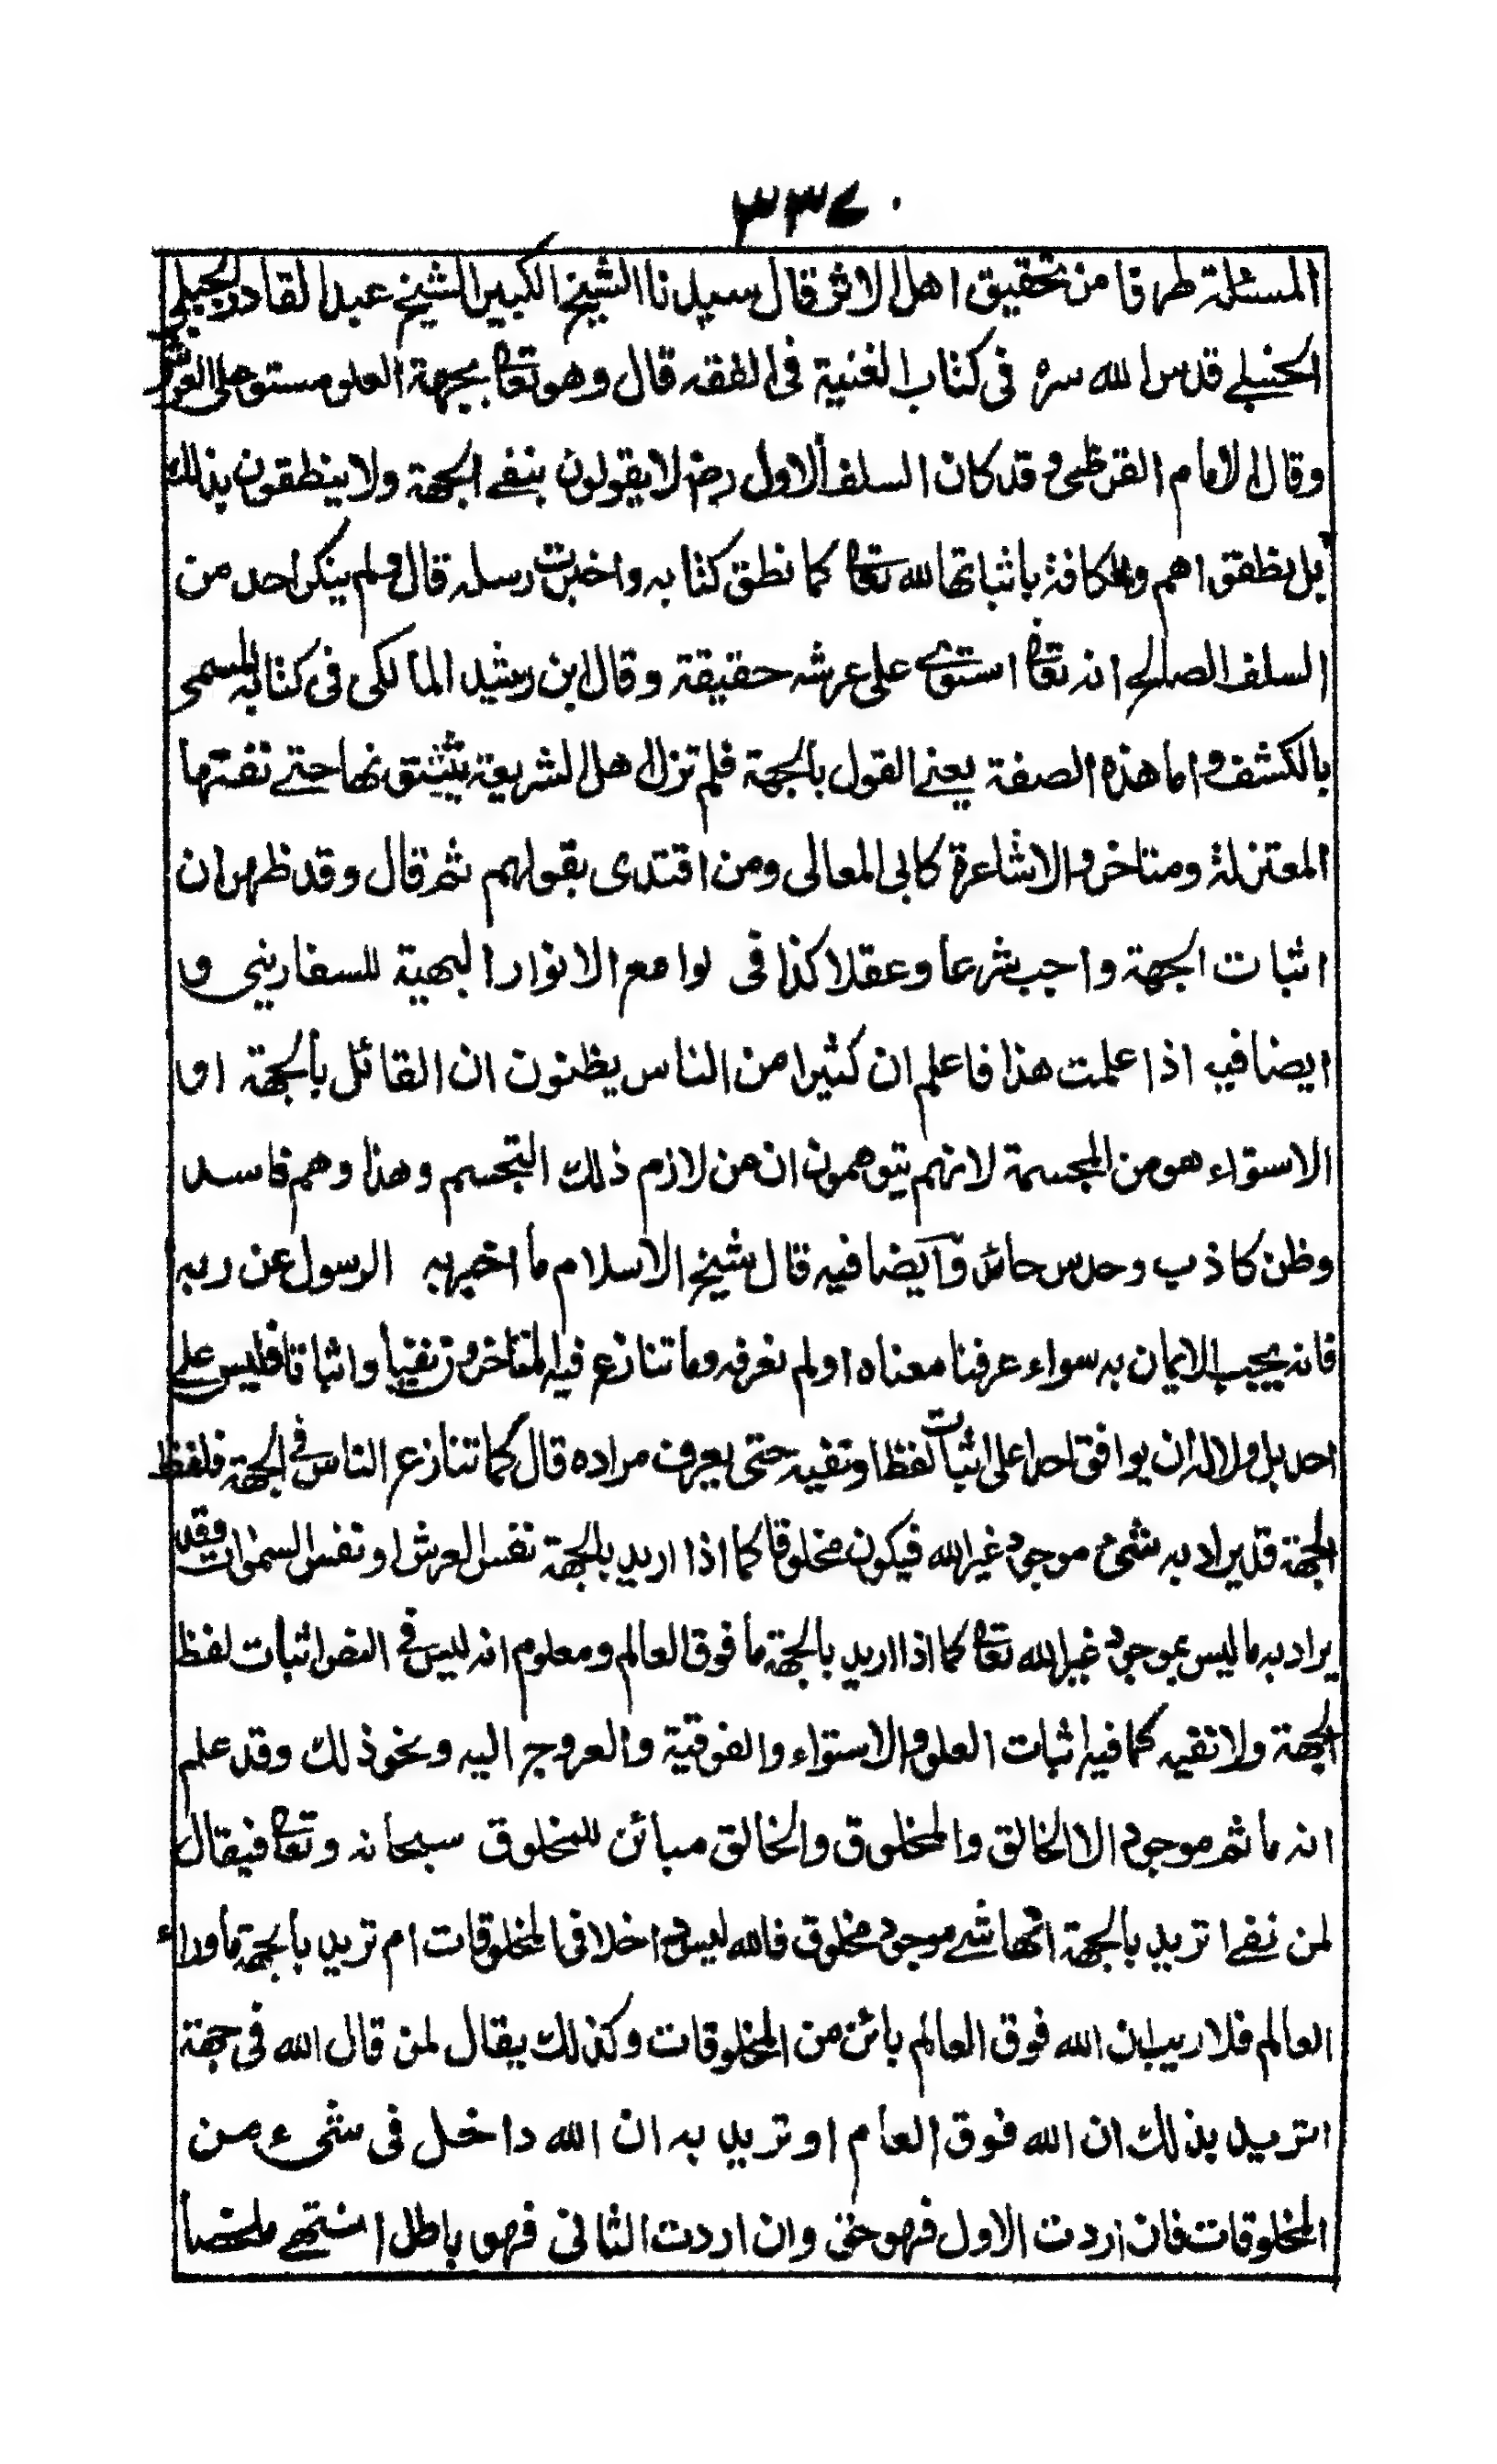 ٣٣٤
المسئلة طرقا من تحقيق اهل الاثر قال سيدنا الشيخ الكبير الشيخ عبد القادر الجيلي
الحنبلے قدس الله سره فى كتاب الغنية فى الفقه قال وهو تعا بجهة العلو مستو على العرش
وقال الامام القرطبى وقد كان السلف الاول رض لا يقولون بنفے الجهة ولا ينطقون بذلك
بل نطقوا هم والكافة باثباتها لله تعا كما نطق كتابه واخبرت رسله قال ولم ينكر احد من
السلف الصالح انه تعا استوى على عرشه حقيقة وقال ابن رشد المالكى فى كتابه المسمى
بالكشف واما هذه الصفة يعنے القول بالجهة فلم تزل اهل الشريعة يثبتونها حتے نفتها
المعتزلة ومتاخرو الاشاعرة كابى المعالى ومن اقتدى بقولهم ثم قال وقد ظهر ان
اثبات الجهة واجب شرعا وعقلا كذا فى لوامع الانوار البهية للسفارينى و
ايضا فيه اذا علمت هذا فاعلم ان كثيرا من الناس يظنون ان القائل بالجهة او
الاستواء هو من المجسمة لانهم يتوهمون ان من لازم ذلك التجسم وهذا وهم فاسد
وظن كاذب وحدس حائر وآيضا فيه قال شيخ الاسلام ما اخبر به الرسول عن ربه
فانه يجب الايمان به سواء عرفنا معناه او لم نعرفه وما تنازع فيه المتاخرون نفيا واثباتا فليس على
احد بل ولا له ان يوافق احدا على اثبات لفظ او نفيه حتى يعرف مراده قال كما تنازع الناس فى الجهة فلفظ
الجهة قد يراد به شئ موجود غير الله فيكون مخلوقا كما اذا اريد بالجهة نفس العرش او نفس السموات وقد
يراد به ما ليس بموجود غير الله تعا كما اذا اريد بالجهة ما فوق العالم ومعلوم انه ليس فى النص اثبات لفظ
الجهة ولا نفيه كما فيه اثبات العلو والاستواء والفوقية والعروج اليه ونحو ذلك وقد علم
انه ما ثم موجود الا الخالق والمخلوق والخالق مبائن للمخلوق سبحانه وتعا فيقال
لمن نفے اتريد بالجهة انها شے موجود مخلوق فالله ليس داخلا فى المخلوقات ام تريد بالجهة ما وراء
العالم فلا ريب ان الله فوق العالم بائن من المخلوقات وكذلك يقال لمن قال الله فى جهة
اتريد بذلك ان الله فوق العالم او تريد به ان الله داخل فى شىء من
المخلوقات فان اردت الاول فهو حق وان اردت الثانى فهو باطل انتهے ملخصا